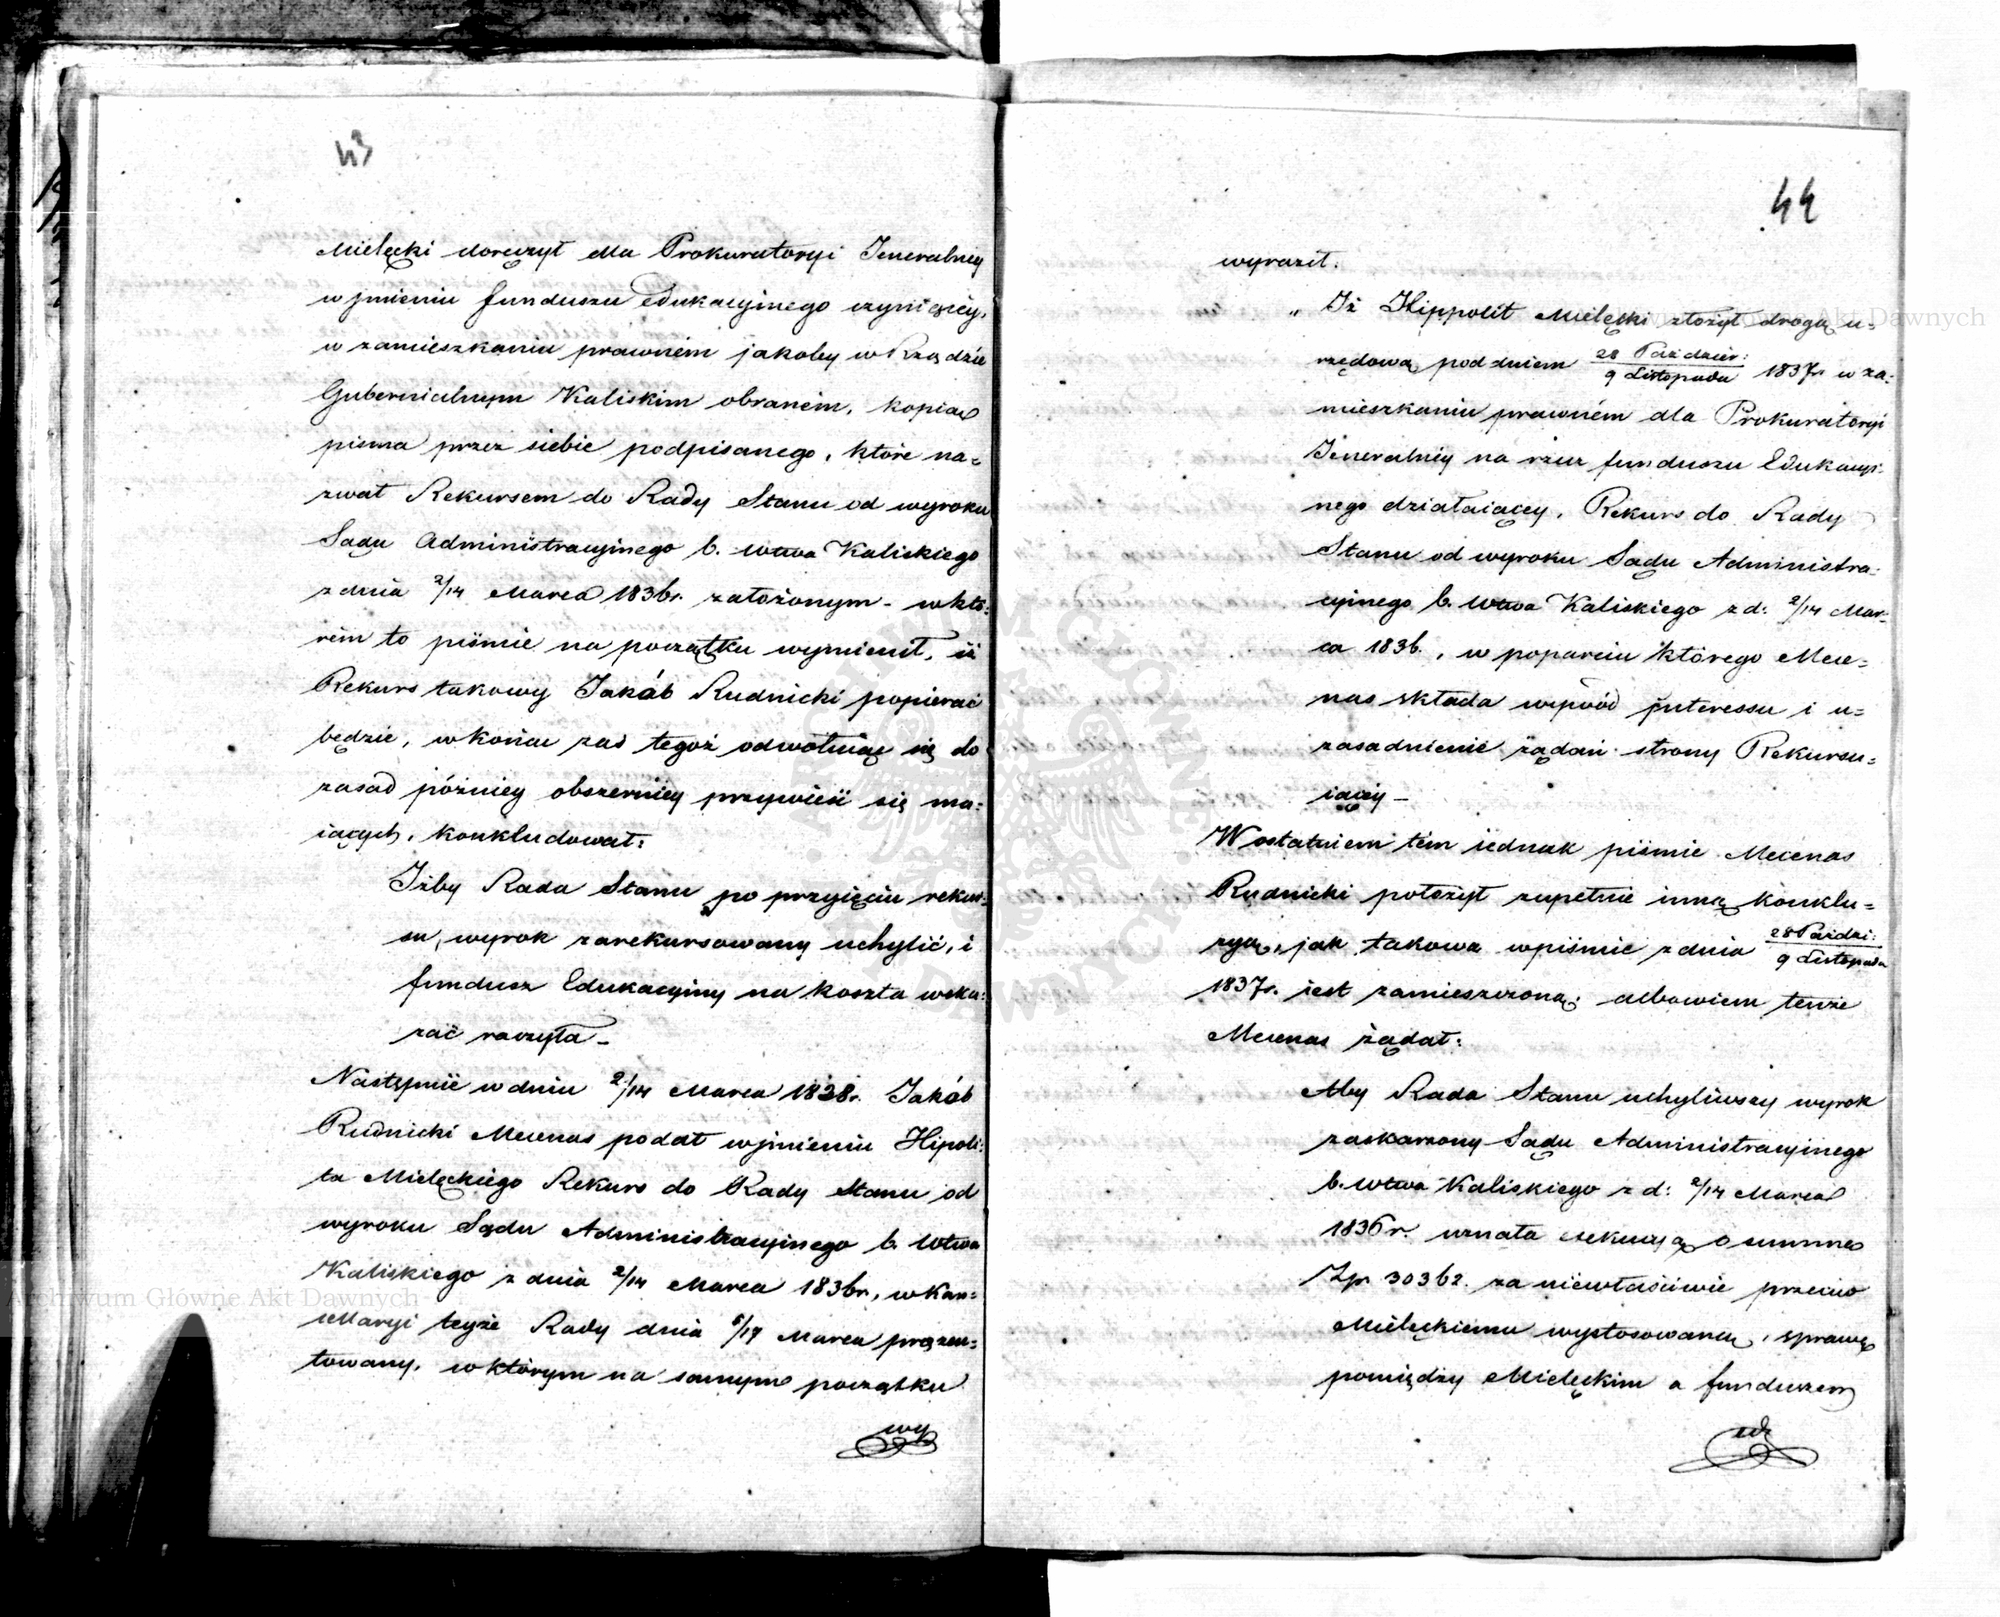 43
Mielęcki doręczył dla Prokuratoryi Jeneralney
w jmieniu funduszu edukacyjnego czyniącey,
w zamieszkaniu prawném jakoby w Rządzie
Gubernialnym Kaliskim obraném, kopią
pisma przez siebie podpisanego, które na=
zwał Rekursem do Rady Stanu od wyroku
Sądu Administracyjnego b. wtwa Kaliskiego
z dnia 2/14 Marca 1836r. założonym – w któ=
rém to piśmie na początku wymienił, iż
Rekurs takowy Jakób Rudnicki popierać
będzie, w końcu zaś tegoż odwołując się do
zasad później obszerniey przywieść się ma=
iących, konkludował:
Jżby Rada Stanu po przyięciu rekur=
su, wyrok zarekursowany uchylić, i
fundusz Edukacyiny na koszta wska=
zać raczyła –
Następnie w dniu 2/14 Marca 1838r. Jakób
Rudnicki Mecenas podał w jmieniu Hipoli=
ta Mielęckiego Rekurs do Rady Stanu od
wyroku Sądu Administracyinego b. Wtwa
Kaliskiego z dnia 2/14 Marca 1836r., w Kan=
cellaryi teyże Rady dnia 5/17 Marca prezen=
towany, w którym na samym początku
wy
44
wyraził.
„ Iż Hippolit Mielęcki złożył drogą u=
rzędową pod dniem 28 Paździer: / 9 Listopada 1837r w za=
mieszkaniu prawném dla Prokuratoryi
Jeneralney na rzecz funduszu Edukacyi=
nego działaiącey, Rekurs do Rady
Stanu od wyroku Sądu Administra=
cyinego b. Wtwa Kaliskiego z d: 2/14 Mar=
ca 1836., w poparciu którego Mece=
nas składa wywód jnteressu i u=
zasadnienie żądań strony Rekursu=
iącéy –
W ostatniem tém iednak piśmie Mecenas
Rudnicki położył zupełnie inną konklu=
zyą, jak takowa w piśmie z dnia 28 Paździ: / 9 Listopada
1837r. iest zamieszczona; albowiem tenże
Mecenas żądał:
Aby Rada Stanu uchyliwszy wyrok
zaskarżony Sądu Administracyinego
b. Wtwa Kaliskiego z d: 2/14 Marca
1836r. uznała exekucyą o summę
Złp. 30362. za niewłaściwie przeciw
Mielęckiemu wystosowaną, sprawę
pomiędzy Mielęckim a funduszem
Archiwum Główne Akt Dawnych